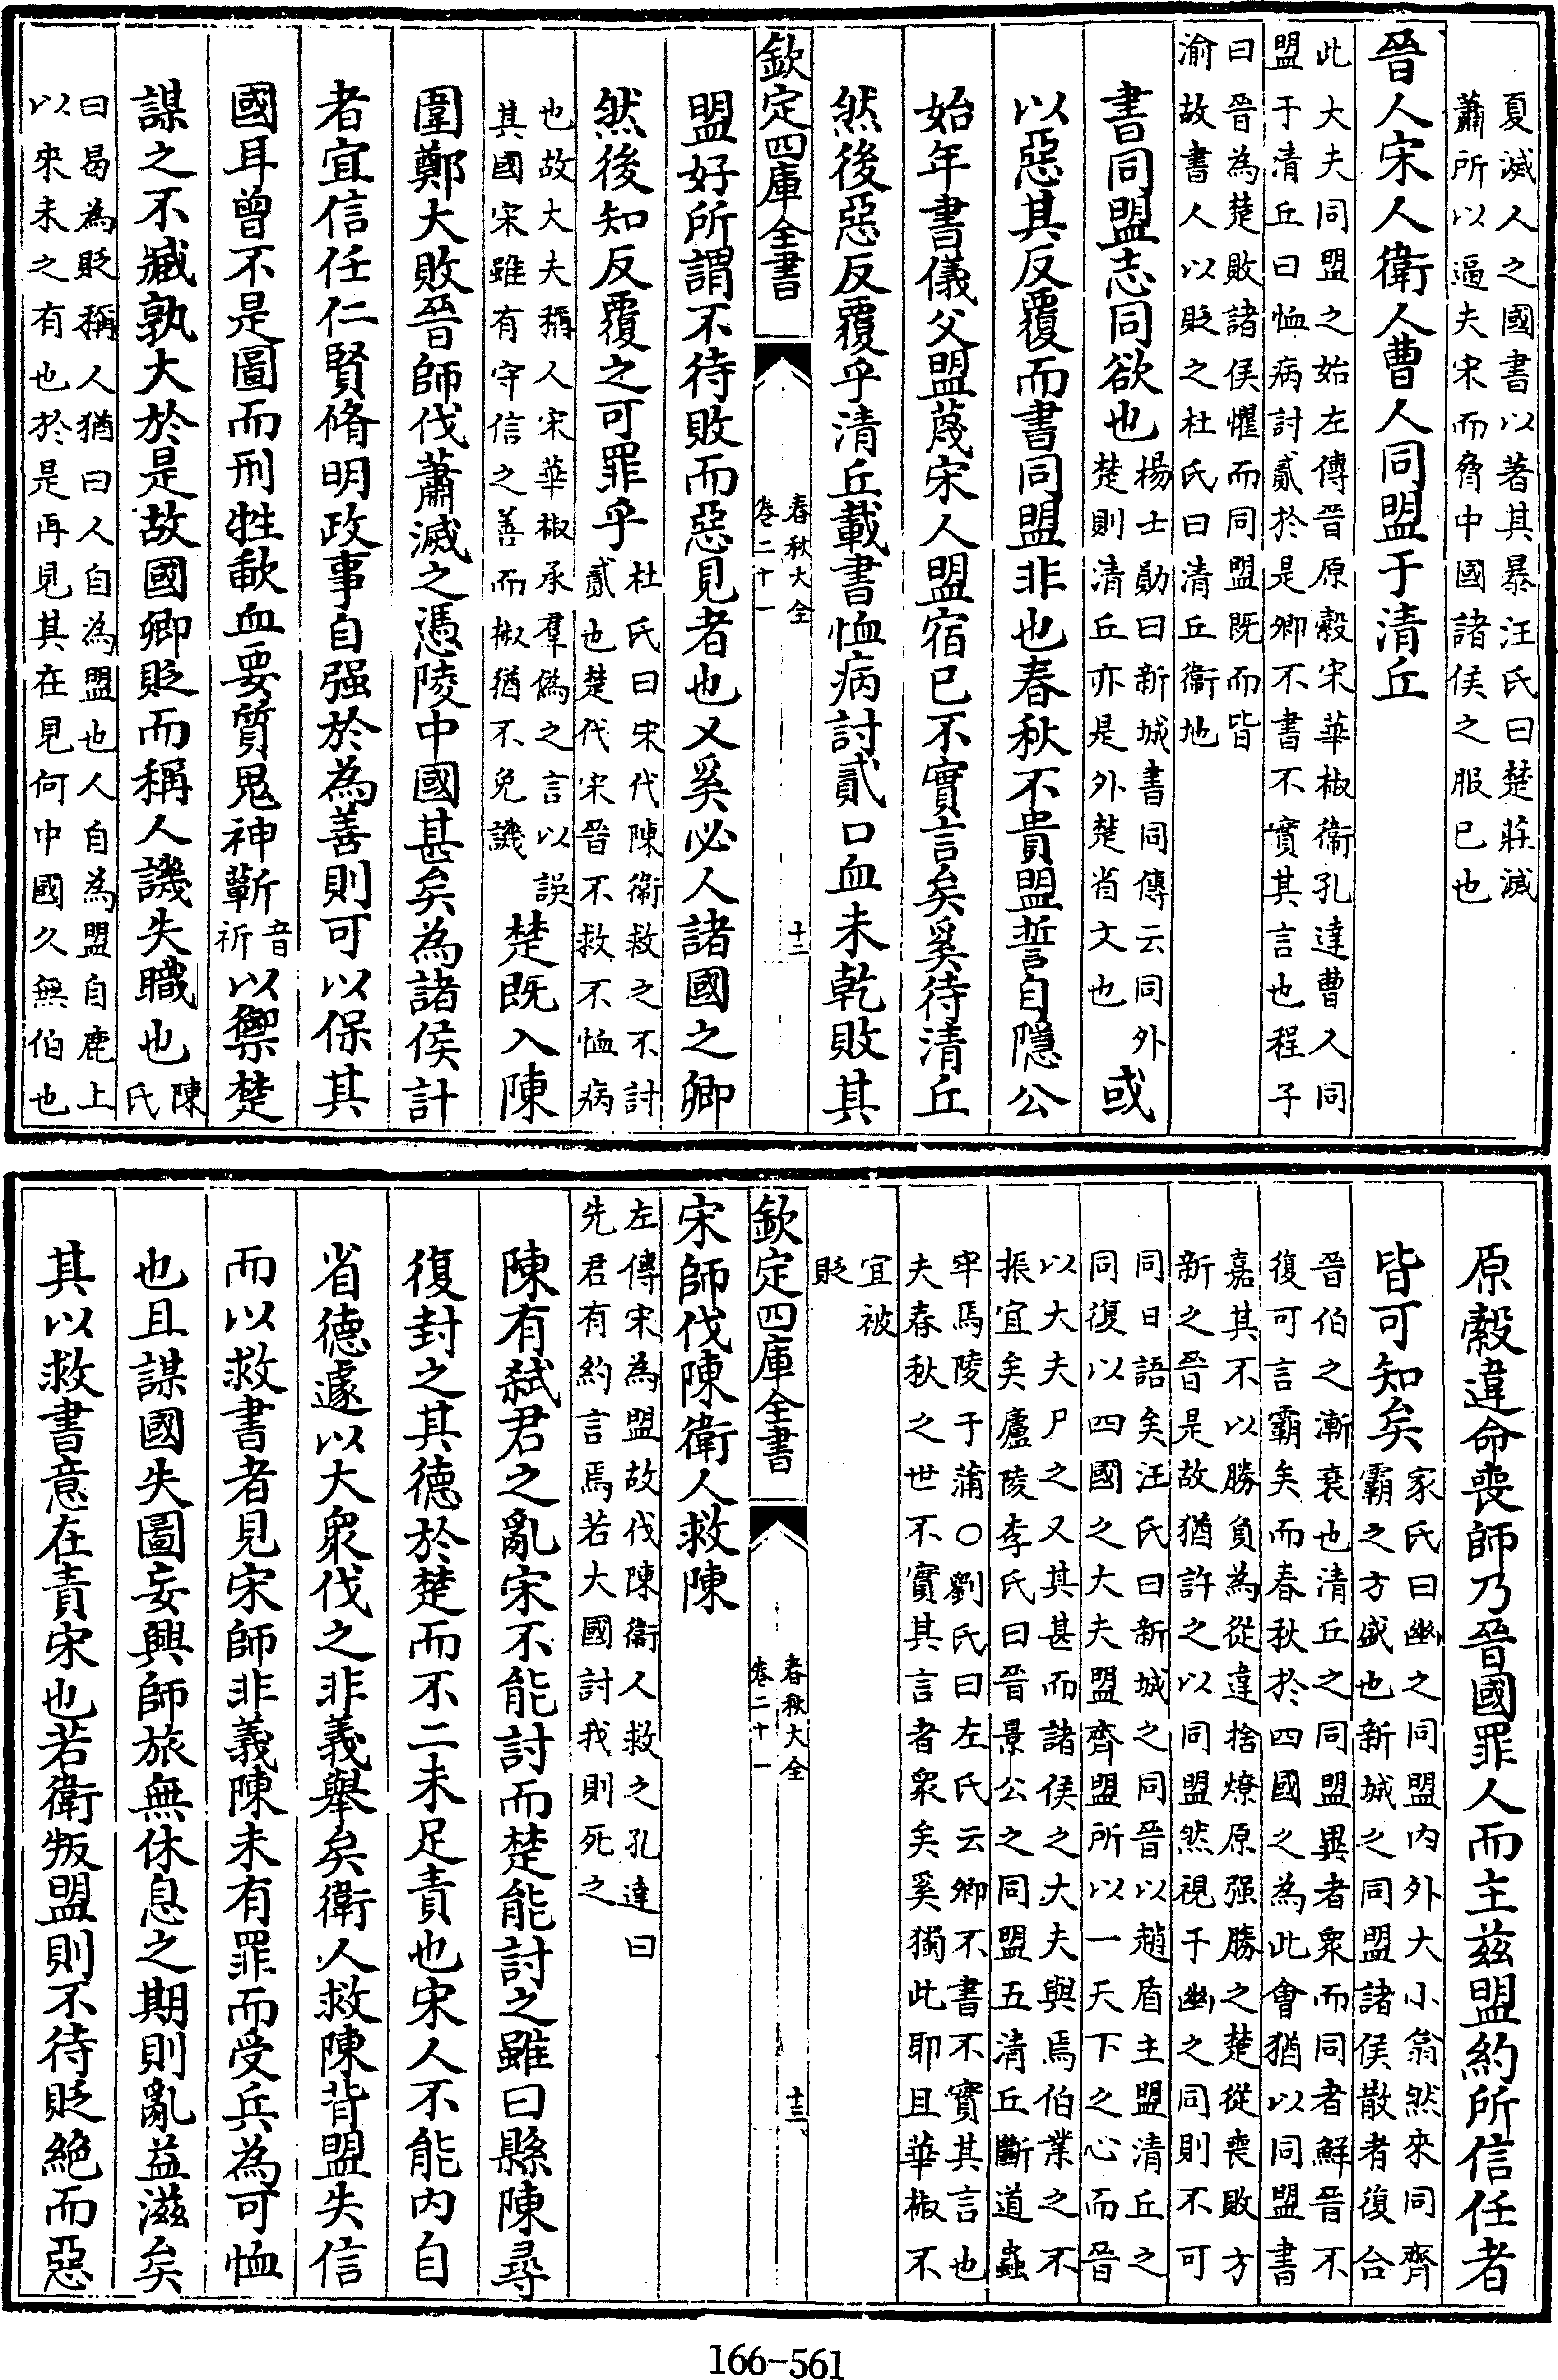 夏滅人之國書以著其暴汪氏曰楚莊滅
蕭所以逼夫宋而脅中國諸侯之服已也
晉人宋人衛人曹人同盟于清丘
此大夫同盟之始左傳晉原縠宋華椒衞孔達曹人同
盟于清丘曰恤病討貳於是卿不書不實其言也程子
曰晉為楚敗諸侯懼而同盟既而皆
渝故書人以貶之杜氏曰清丘衞地
書同盟志同欲也楊士勛曰新城書同傳云同外
楚則清丘亦是外楚省文也或
以惡其反覆而書同盟非也春秋不貴盟誓自隱公
始年書儀父盟蔑宋人盟宿已不實言矣奚待清丘
然後惡反覆乎清丘載書恤病討貳口血未乾敗其
欽定四庫全書
春秋大全
卷二十一
十二
盟好所謂不待敗而惡見者也又奚必人諸國之卿
然後知反覆之可罪乎杜氏曰宋代陳衞救之不討
貳也楚代宋晉不救不恤病
也故大夫稱人宋華椒承羣偽之言以誤
其國宋雖有守信之善而椒猶不免譏楚既入陳
圍鄭大敗晉師伐蕭滅之憑陵中國甚矣為諸侯計
者宜信任仁賢脩明政事自强於為善則可以保其
國耳曾不是圖而刑牲歃血要質鬼神蘄音
祈以禦楚
謀之不臧孰大於是故國卿貶而稱人譏失職也陳
氏
曰曷為貶稱人猶曰人自為盟也人自為盟自鹿上
以來未之有也於是再見其在見何中國久無伯也
原縠違命喪師乃晉國罪人而主兹盟約所信任者
皆可知矣家氏曰幽之同盟内外大小翕然來同齊
霸之方盛也新城之同盟諸侯散者復合
晉伯之漸衰也清丘之同盟異者衆而同者鮮晉不
復可言霸矣而春秋於四國之為此會猶以同盟書
嘉其不以勝負為從違捨燎原强勝之楚從喪敗方
新之晉是故猶許之以同盟然視于幽之同則不可
同日語矣汪氏曰新城之同晉以趙盾主盟清丘之
同復以四國之大夫盟齊盟所以一天下之心而晉
以大夫尸之又其甚而諸侯之大夫與焉伯業之不
振宜矣廬陵李氏曰晉景公之同盟五清丘斷道蟲
牢馬陵于蒲○劉氏曰左氏云卿不書不實其言也
夫春秋之世不實其言者衆矣奚獨此耶且華椒不
宜被
貶
欽定四庫全書
春秋大全
卷二十一
十三
宋師伐陳衛人救陳
左傳宋為盟故伐陳衞人救之孔達曰
先君有約言焉若大國討我則死之
陳有弑君之亂宋不能討而楚能討之雖曰縣陳尋
復封之其德於楚而不二未足責也宋人不能内自
省德遽以大衆伐之非義舉矣衛人救陳背盟失信
而以救書者見宋師非義陳未有罪而受兵為可恤
也且謀國失圖妄興師旅無休息之期則亂益滋矣
其以救書意在責宋也若衛叛盟則不待貶絕而惡
166-561